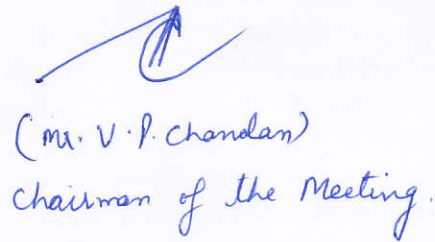 (Mr. V.P. Chandan)
Chairman of the Meeting.